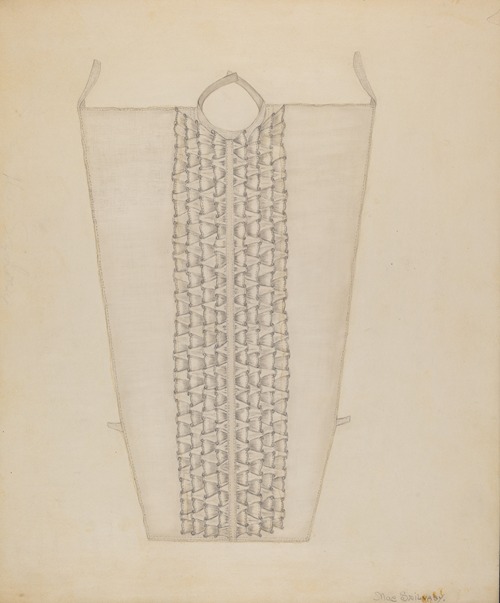 Mae Szilvasy.